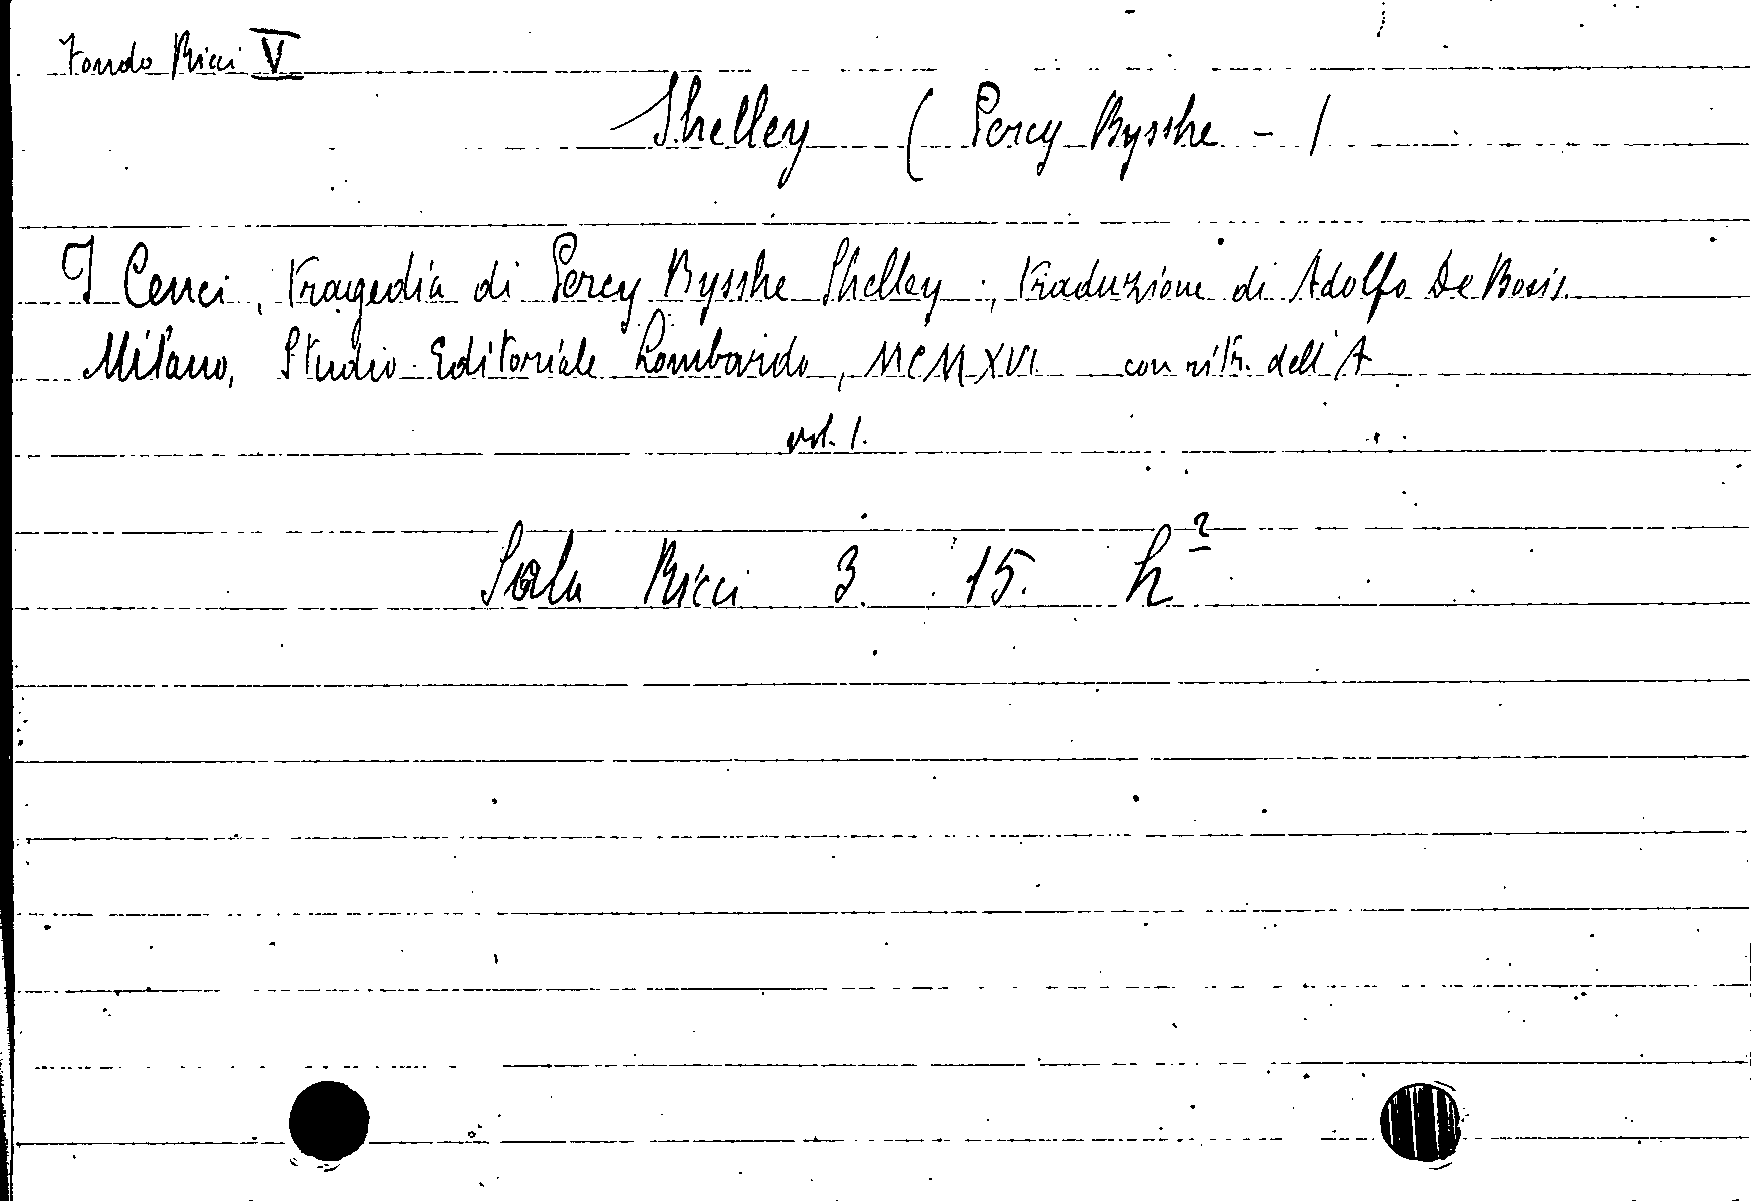 Fondo Ricci V
Shelley ( Percy Bysshe - )
I Cenci, tragedia di Percy Bysshe Shelley ., traduzione di Adolfo De Bosis.
Milano, Studio Editoriale Lombardo, MCMXVI con ritr. dell'A
vol. 1.
Sala Ricci 3. 15. h²